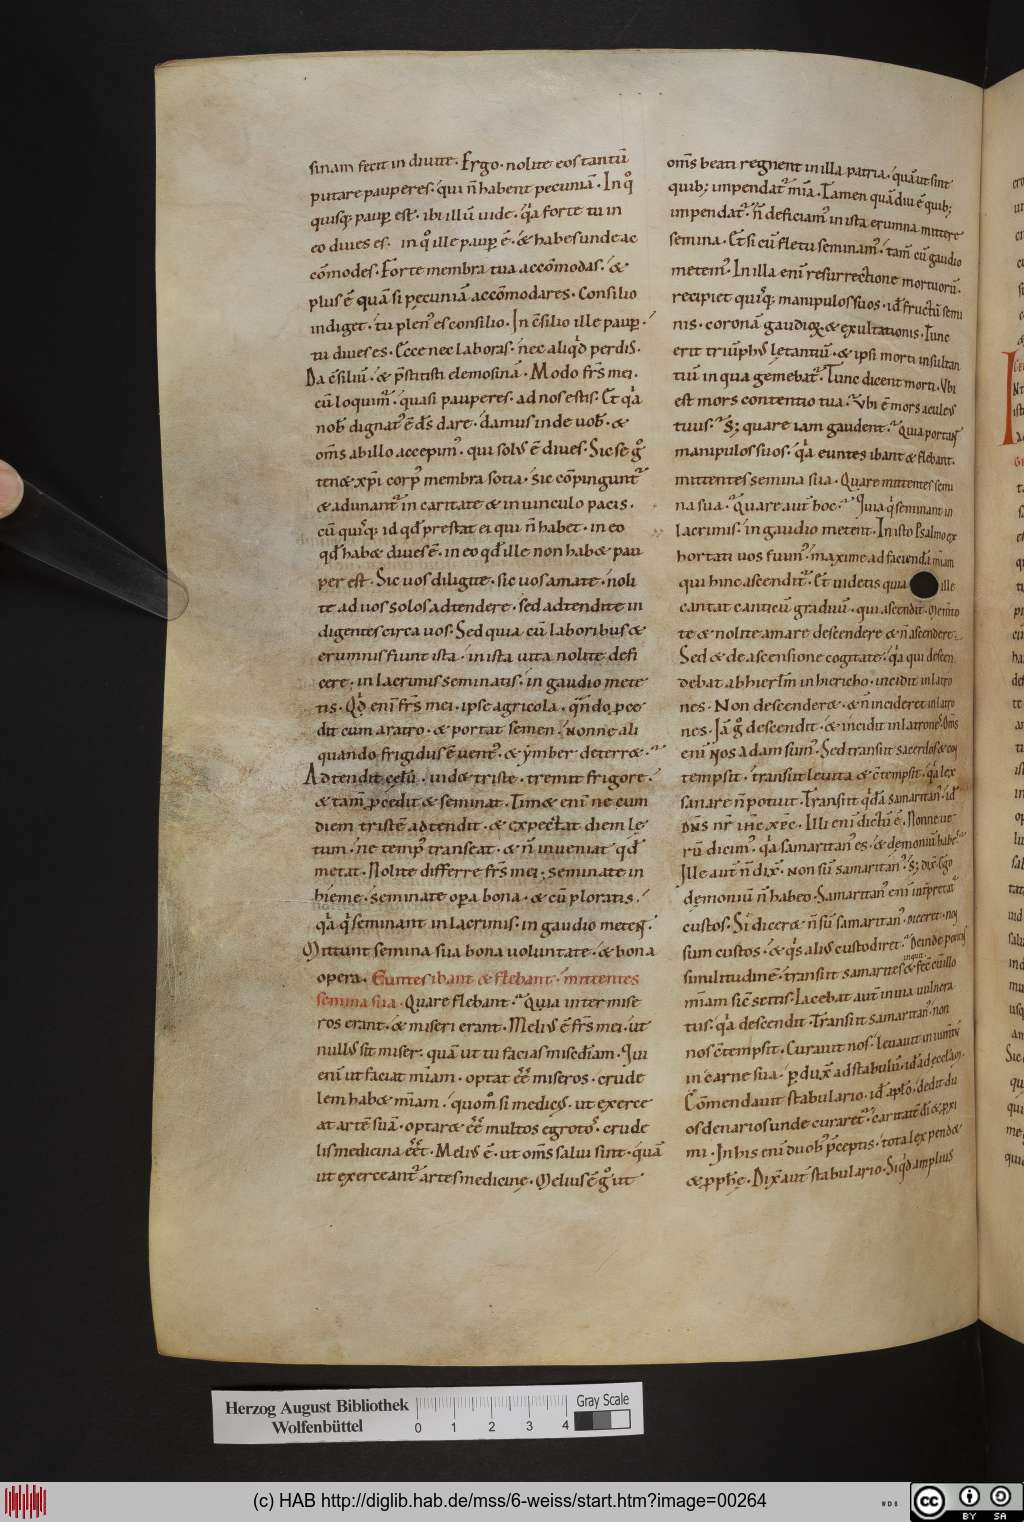 sinam fecit in diuite. Ergo. nolite eos tantū
putare pauperes. qui n̄ habent pecuniā. In q̊
quisq; paup̱ est. ibi illū uide. q̇a forte tu in
eo diues es. in q̊ ille paup̱ ē. & habes unde ac
cōmodes. Forte membra tua accōmodas. &
plus ē quā si pecuniā accōmodares. Consilio
indiget. tu plen᾿ es consilio. In c̄silio ille paup̱.
tu diues es. Ecce nec laboras. nec aliq̇d perdis.
Da c̄siliū. & p̄stitisti elemosinā. Modo fr̄s mei.
cū loquim᾿. quasi pauperes. ad nos estis. Et q̇a
nob̄ dignat᾿ ē d̄s dare. damus inde uob̄. &
om̄s ab illo accepim᾿. qui sol᾿ ē diues. Sic se g̊
ten& xp̄i corp᾿ membra sotia. sic cōpingunt᾿
& adunant᾿ in caritate & in uinculo pacis.
cū quisq; id qd̄ prestat ei qui n̄ habet. in eo
qd̄ hab& diues ē. in eo qd̄ ille non hab& pau
per est. Sic uos diligite. sic uos amate. noli
te ad uos solos adtendere. sed adtendite in
digentes circa uos. Sed quia cū laboribus &
erumnis fiunt ista. in ista uita nolite defi
cere. in lacrimis seminatis. in gaudio mete
tis. Q̇d eni fr̄s mei. ipse agricola. qn̄do p̱ce
dit cum aratro. & portat semen. nonne ali
quando frigidus ē uent᾿. & ẏmber deterr&.
Adtendit celū. uid& triste. tremit frigore.
& tam̄ p̱cedit & seminat. Tim& enī ne cum
diem tristē adtendit. & expectat diem le
tum. ne temp᾿ transeat. & n̄ inueniat qd̄
metat. Nolite differre fr̄s mei; seminate in
hieme. seminate op̱a bona. & cū ploratis.
q̇a q̇ seminant in lacrimis. in gaudio metent.
Mittunt semina sua bona uoluntate. & bona
opera. Euntes ibant & flebant. mittentes
semina sua. Quare flebant. Quia inter mise
ros erant. & miseri erant. Meli᾿ ē fr̄s mei. ut
null᾿ sit miser. quā ut tu facias mised̄iam. Qui
enī ut faciat m̄iam. optat ēe miseros. crude
lem hab& m̄iam. quom̊ si medic᾿. ut exerce
at artē suā. optar& ēe multos egroto᾿. crude
lis medicina ēet. Meli᾿ ē. ut om̄s salui sint. quā
ut exerceant᾿ artes medicine. Melius ē g̊ ut
om̄s beati regnent in illa patria. quā ut sint
quib; impendat᾿ m̄ia. Tamen quādiu ē quib;
impendat᾿. n̄ deficiam᾿ in ista erumna mittere
semina. Et si cū fletu seminam᾿. tam̄ cū gaudio
metem᾿. In illa enī resurrectione mortuorū.
recipiet quisq; manipulos suos. id̄ fructū semi
nis. coronā gaudioꝝ. & exultationis. Tunc
erit triūph᾿ letantiū. & ipsi morti insultan
tiū in qua gemebat᾿. Tunc dicent morti. Vbi
est mors contentio tua. Vbi ē mors acule᾿
tuus. S; quare iam gaudent. Quia portant
manipulos suos. q̇a euntes ibant & flebant.
mittentes semina sua. Quare mittentes semi
na sua. Quare aut̄ hoc. Quia q̇ seminant in
lacrimis. in gaudio metent. In isto Psalmo ex
hortati uos fuim᾿. maxime ad facienda m̄iam
qui hinc ascendit᾿. Et uidetis quia ille
cantat canticū graduū. qui ascendit. Memto
te & nolite amare descendere & n̄ ascendere.
Sed & de ascensione cogitate. q̇a qui descen
debat ab hierl̄m in hiericho. incidit in latro
nes. Non descender&. & n̄ incideret in latro
nes. Iā g̊ descendit. & incidit in latrones. Om̄s
enī nos adam sum᾿. Sed transiit sacerdos & con
tempsit. transiit leuita & c̄tempsit. q̇a lex
sanare n̄ potuit. Transiit q̇dā samaritan᾿. id̄
dn̄s nr̄ ih̄c xp̄c. Illi enī dictū ē. Nonne ue
rū dicim᾿. q̇a samaritan᾿ es. & demoniū habes.
Ille aut̄ n̄ dix̄. non sū samaritan᾿. s; dix̄. Ego
demoniū n̄ habeo. Samaritan᾿ enī int̄pretat᾿
custos. Si dicer& n̄ sū samaritan᾿. diceret. non
sum custos. & q̇s ali᾿ custodiret. Deinde ponens
inquit
similitudinē. transiit samarites & fec̄ cū illo
m̄iam sic̄ scitis. Iacebat aut̄ in uia uulnera
tus. q̇a descendit. Transiit samaritan᾿. non
nos c̄tempsit. Curauit nos. leuauit in iumtū
in carne sua. p̱dux̄ ad stabulū. id̄ ad ecclām.
Cōmendauit stabulario. id̄ apl̄o. dedit du
os denarios unde curaret᾿. caritatē dī & p̱xi
mi. In his enī duob᾿ p̄ceptis. tota lex pend&
& p̱ph̄e. Dix̄ aut̄ stabulario. Siq̇d amplius
Herzog August Bibliothek
Wolfenbüttel
0 1 2 3 4
Gray Scale
(c) HAB http://diglib.hab.de/mss/6-weiss/start.htm?image=00264
cc BY SA